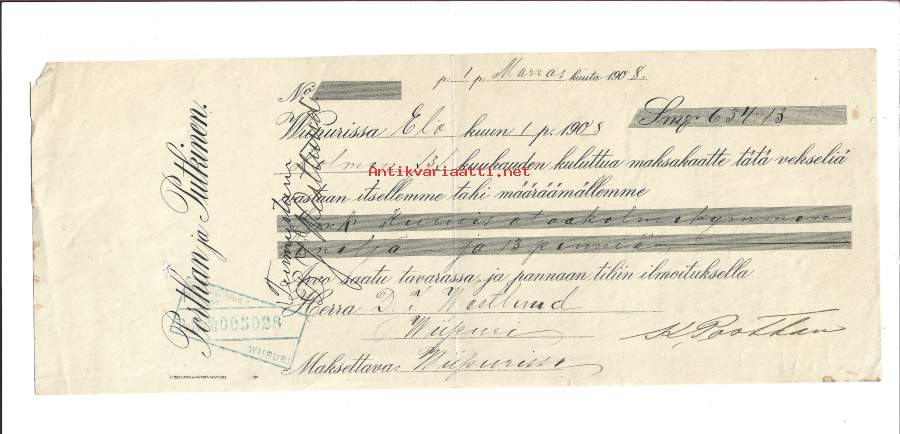 p. 1 p. Marras kuuta 1908.
No.
Wiipurissa Elo kuun 1 p. 1908 Smg: 634:13
Kolmen (3) kuukauden kuluttua maksakaatte tätä vekseliä
vastaan itsellemme tahi määräämällemme
Smk Kuusisataakolmekymmen
neljä ja 13 penniä
arvo saatu tavarassa, ja pannaan tiliin ilmoituksella
Herra D. J. Westlund
Wiipuri
Maksettava: Wiipurissa
Posthan ja Putkinen.
005028
WIIPURI
Antikvariaatti.net